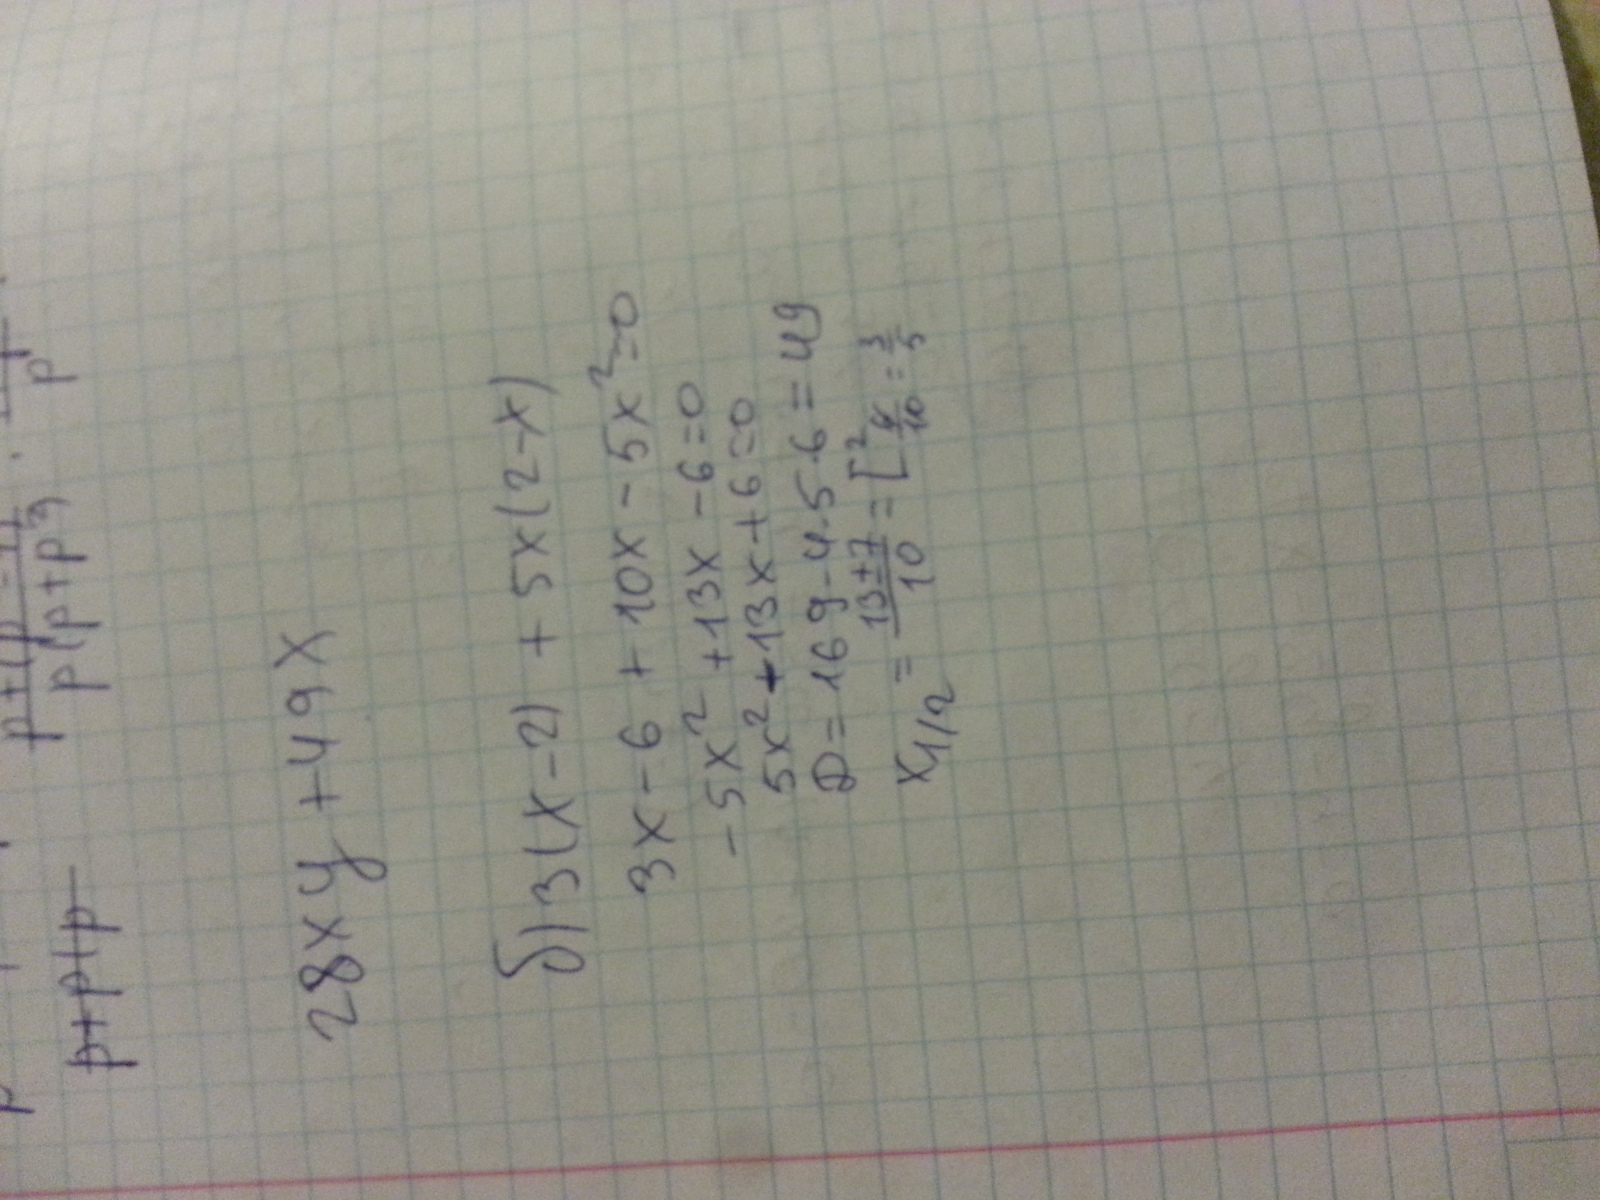 p(p+p³)
p
p+p(p
28xy+49x
б) 3(x-2) + 5x(2-x)
3x-6 + 10x - 5x²=0
-5x² +13x -6=0
5x²-13x+6=0
D=169-4·5·6=49
x1/2 = 13±7/10 = [2 6/10 = 3/5